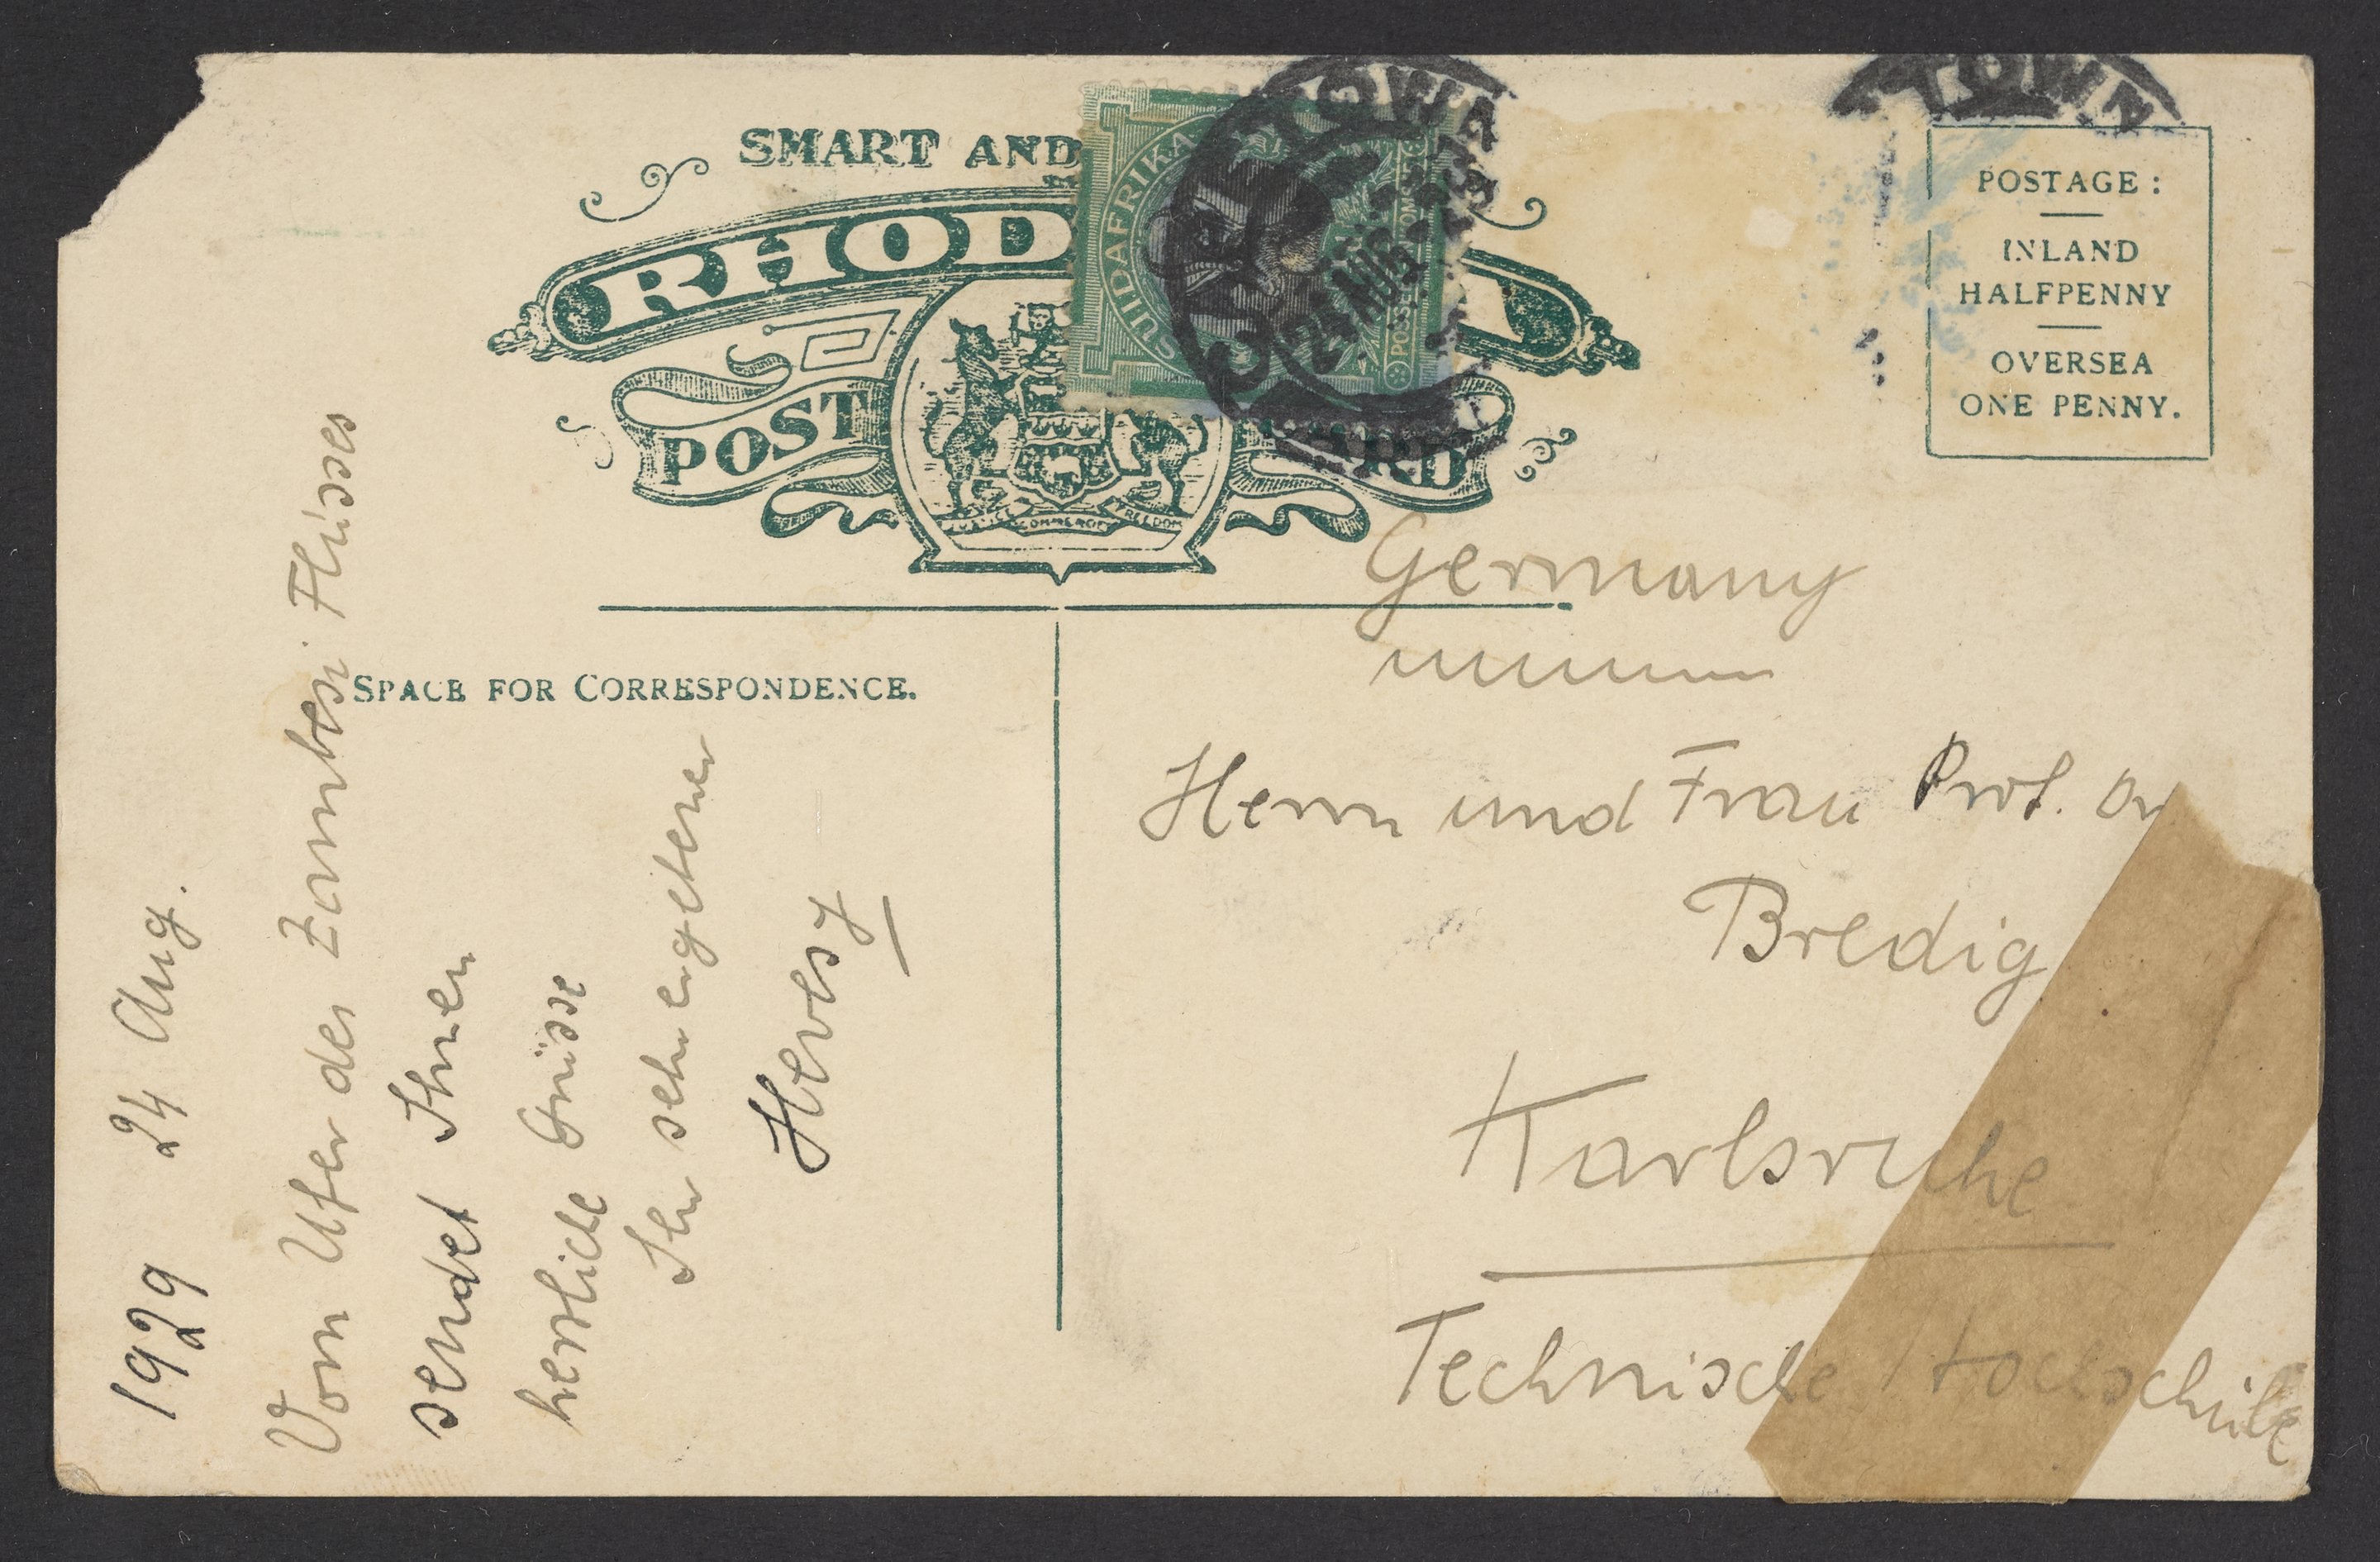 SMART AND
RHOD
POST
RD
JUSTICE COMMERCE FREEDOM
SUIDAFRIKA
TOWN
24 AUG
TOWN
POSTAGE:
INLAND
HALFPENNY
OVERSEA
ONE PENNY.
SPACE FOR CORRESPONDENCE.
1929 24 Aug.
Vom Ufer des Zambesi Flusses
sendet Ihnen
herzliche Grüsse
Ihr sehr ergebener
Hevesy
Germany
Herrn und Frau Prof. Dr
Bredig
Karlsruhe
Technische Hochschule